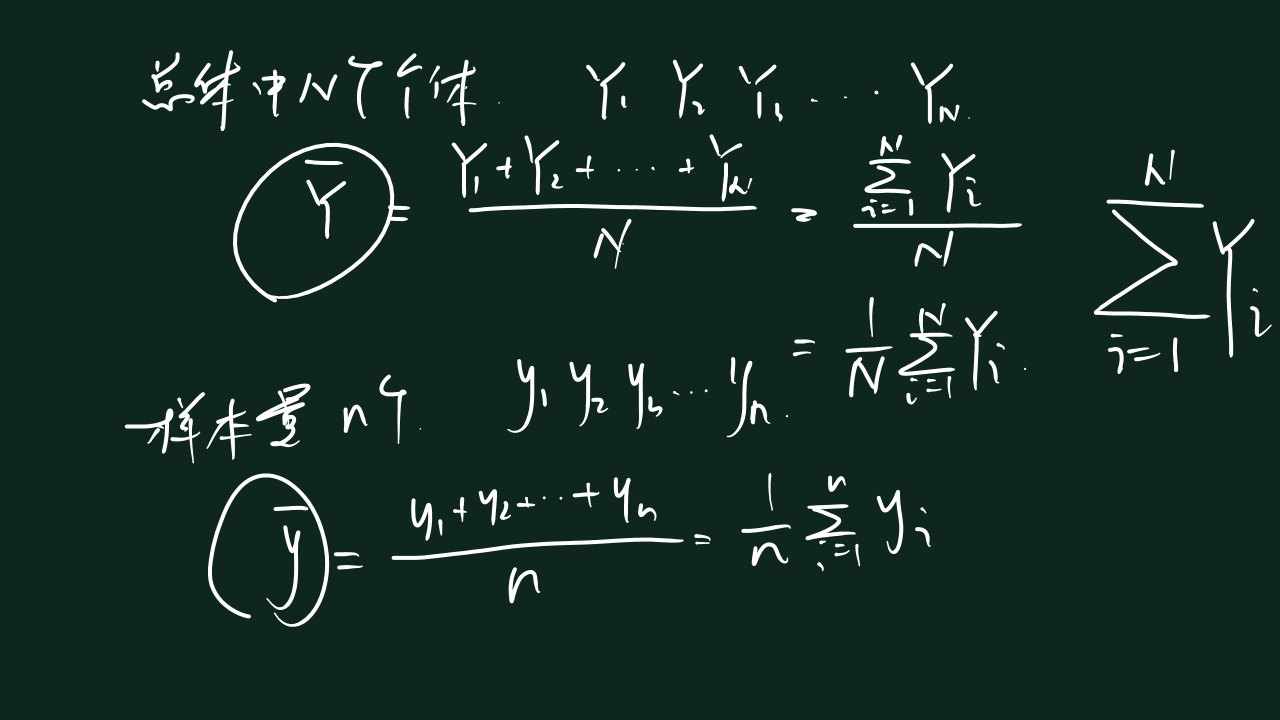 总体中N个个体. Y₁ Y₂ Y₃ ..... Y_N.
Ȳ = (Y₁ + Y₂ + ··· + Y_N) / N = (∑_{i=1}^{N} Y_i) / N
∑_{i=1}^{N} Y_i
= 1/N ∑_{i=1}^{N} Y_i.
样本量 n个. y₁ y₂ y₃ ... y_n.
ȳ = (y₁ + y₂ + ··· + y_n) / n = 1/n ∑_{i=1}^{n} y_i